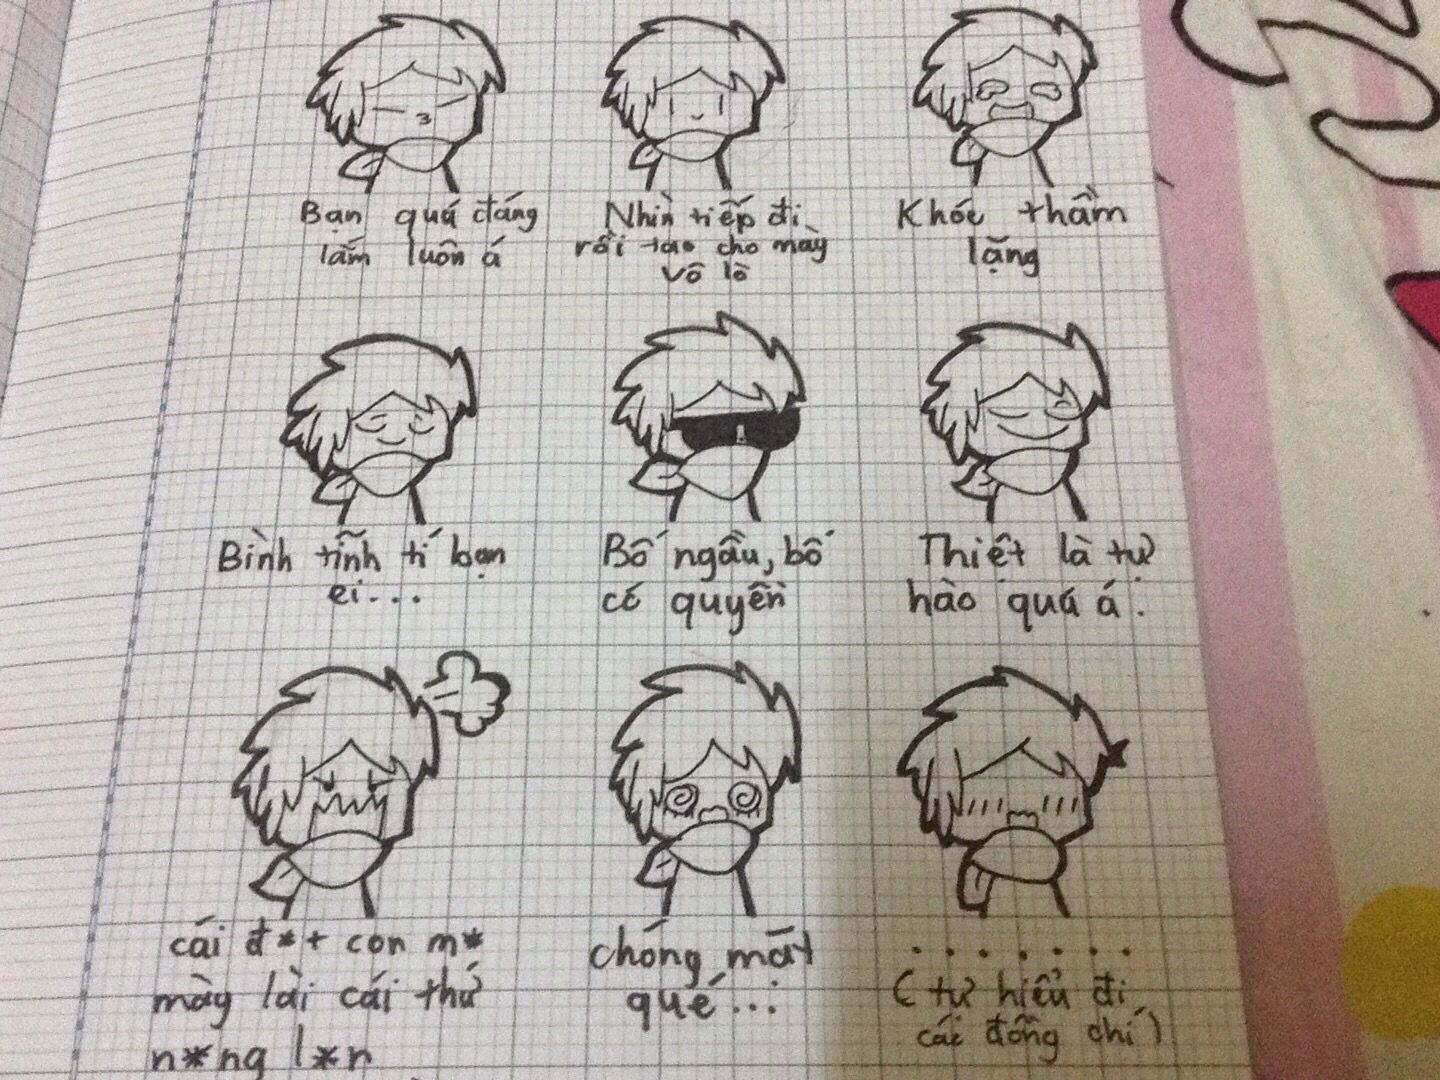 Bạn quá đáng
lắm luôn á
Nhìn tiếp đi
rồi tao cho mày
vô lò
Khóc thầm
lặng
Bình tĩnh tí bạn
ei...
Bố ngầu, bố
có quyền
Thiệt là tự
hào quá á.
cái đ*t con m*
mày lài cái thứ
n*ng l*n
chóng mặt
qué...
.......
( tự hiểu đi
các đồng chí )